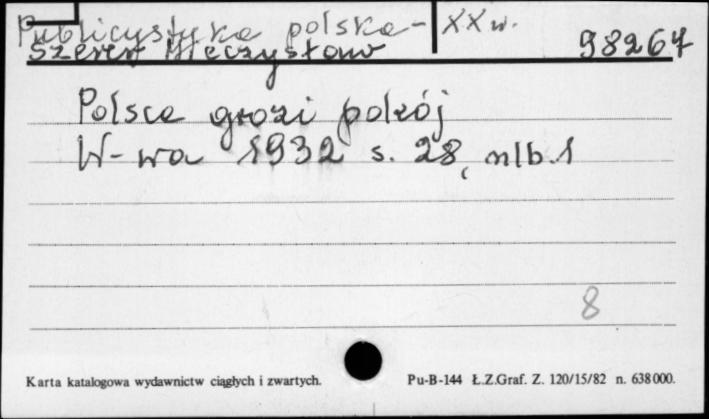 Publicystyka polska - XX w.
Szerer Mieczysław 98267
Polsce grozi pokój
W-wa 1932 s. 28, nlb. 1
8
Karta katalogowa wydawnictw ciągłych i zwartych. Pu-B-144 Ł.Z.Graf. Z. 120/15/82 n. 638000.